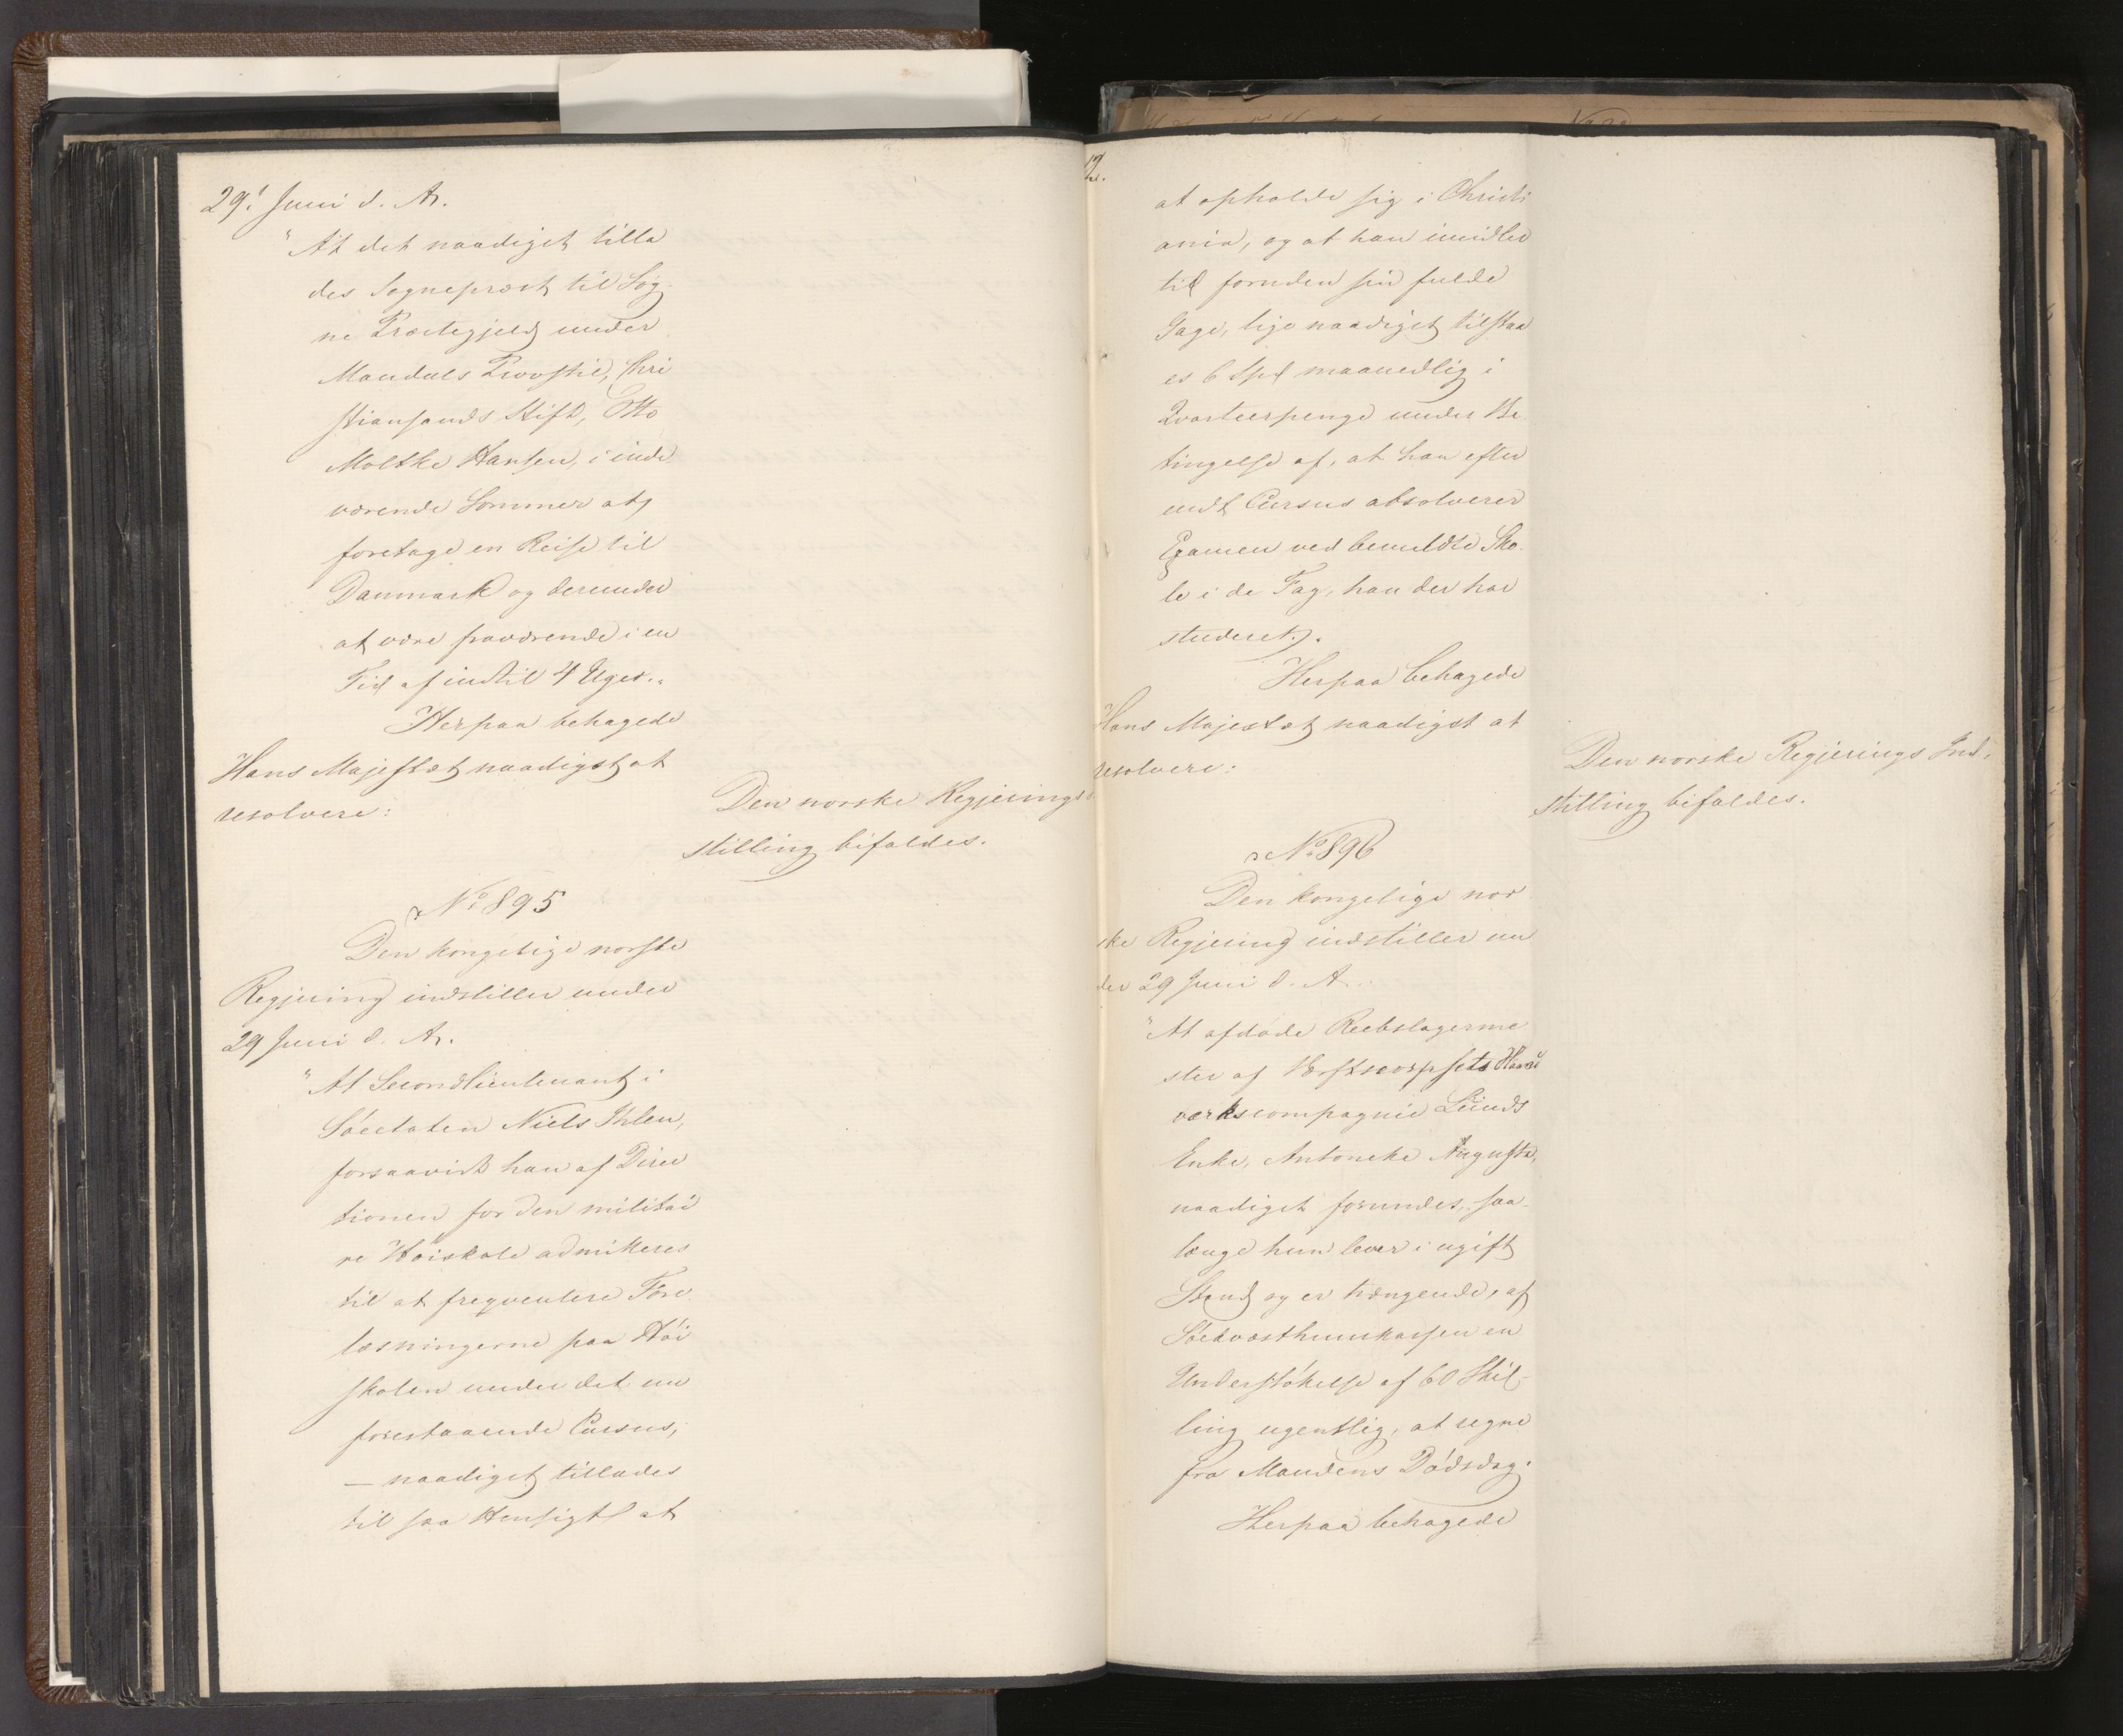 29! Juni d. Ar.
"At det naadigst tilla
des Sogneprest til Søg
ne Præstegjeld under
Mandals Provstie, Chri
stiansands Stift, Otto
Moltke Hansen, i inde
værende Sommer at
foretage en Reise til
Danmark og derunder
at være fraværende i en
Tid af indtil 4 Uger."
Herpaa behagede
Hans Majestæt naadigst at
resolvere:
Den norske Regjerings
stilling bifaldes.
No 895
Den kongelige norske
Regjering indstiller under
29 Juni d. Ar.
"At Secondlieutenant i
Søeetaten Niels Ihlen,
forsaavidt han af Direc
tionen for den militæ
re Høiskole admitteres
til at freqventere Fore
læsningerne paa Høi
skolen under det nu
forestaaende Cursus,
— naadigst tillades
til saa Hensigt at
12.
at opholde sig i Christi
ania, og at han imidler
tid foruden sin fulde
Gage, lige naadigst tilstaa
es 6 Spd maanedlig i
Qvarteerpenge under Be
tingelse af, at han efter
endt Cursus absolverer
Examen ved bemeldte Sko
le i de Fag, han der har
studeret.".
Herpaa behagede
Hans Majestæt naadigst at
resolvere:
Den norske Regjerings Ind,
stilling bifaldes.
No 896
Den kongelige nor
ske Regjering indstiller un
der 29 Juni d. A.
"At afdøde Reebslagerme
ster af Værftscorpsets Haand
værkscompagnie Lunds
Enke, Antoneke Augusta,
naadigst forundes, saa-
længe hun lever i ugift
Stand og er trængende, af
Søeqvæsthuuskassen en
Understøttelse af 60 Skil-
ling ugentlig, at regne
fra Mandens Dødsdag.
Herpaa behagede